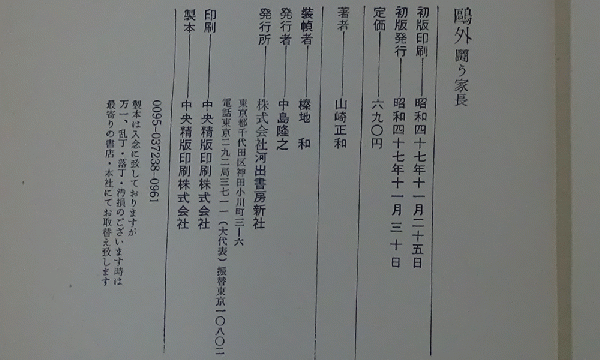 鷗外 闘う家長
初版印刷――昭和四十七年十一月二十五日
初版発行――昭和四十七年十一月三十日
定価――六九〇円
著者――山崎正和
装幀者――榛地 和
発行者――中島隆之
発行所――株式会社河出書房新社
東京都千代田区神田小川町三―六
電話東京二九二局三七一一(大代表)振替東京一〇八〇二
印刷――中央精版印刷株式会社
製本――中央精版印刷株式会社
0095-037238-0961
製本は入念に致しておりますが
万一、乱丁・落丁・汚損のございます時は
最寄りの書店・本社にてお取替え致します